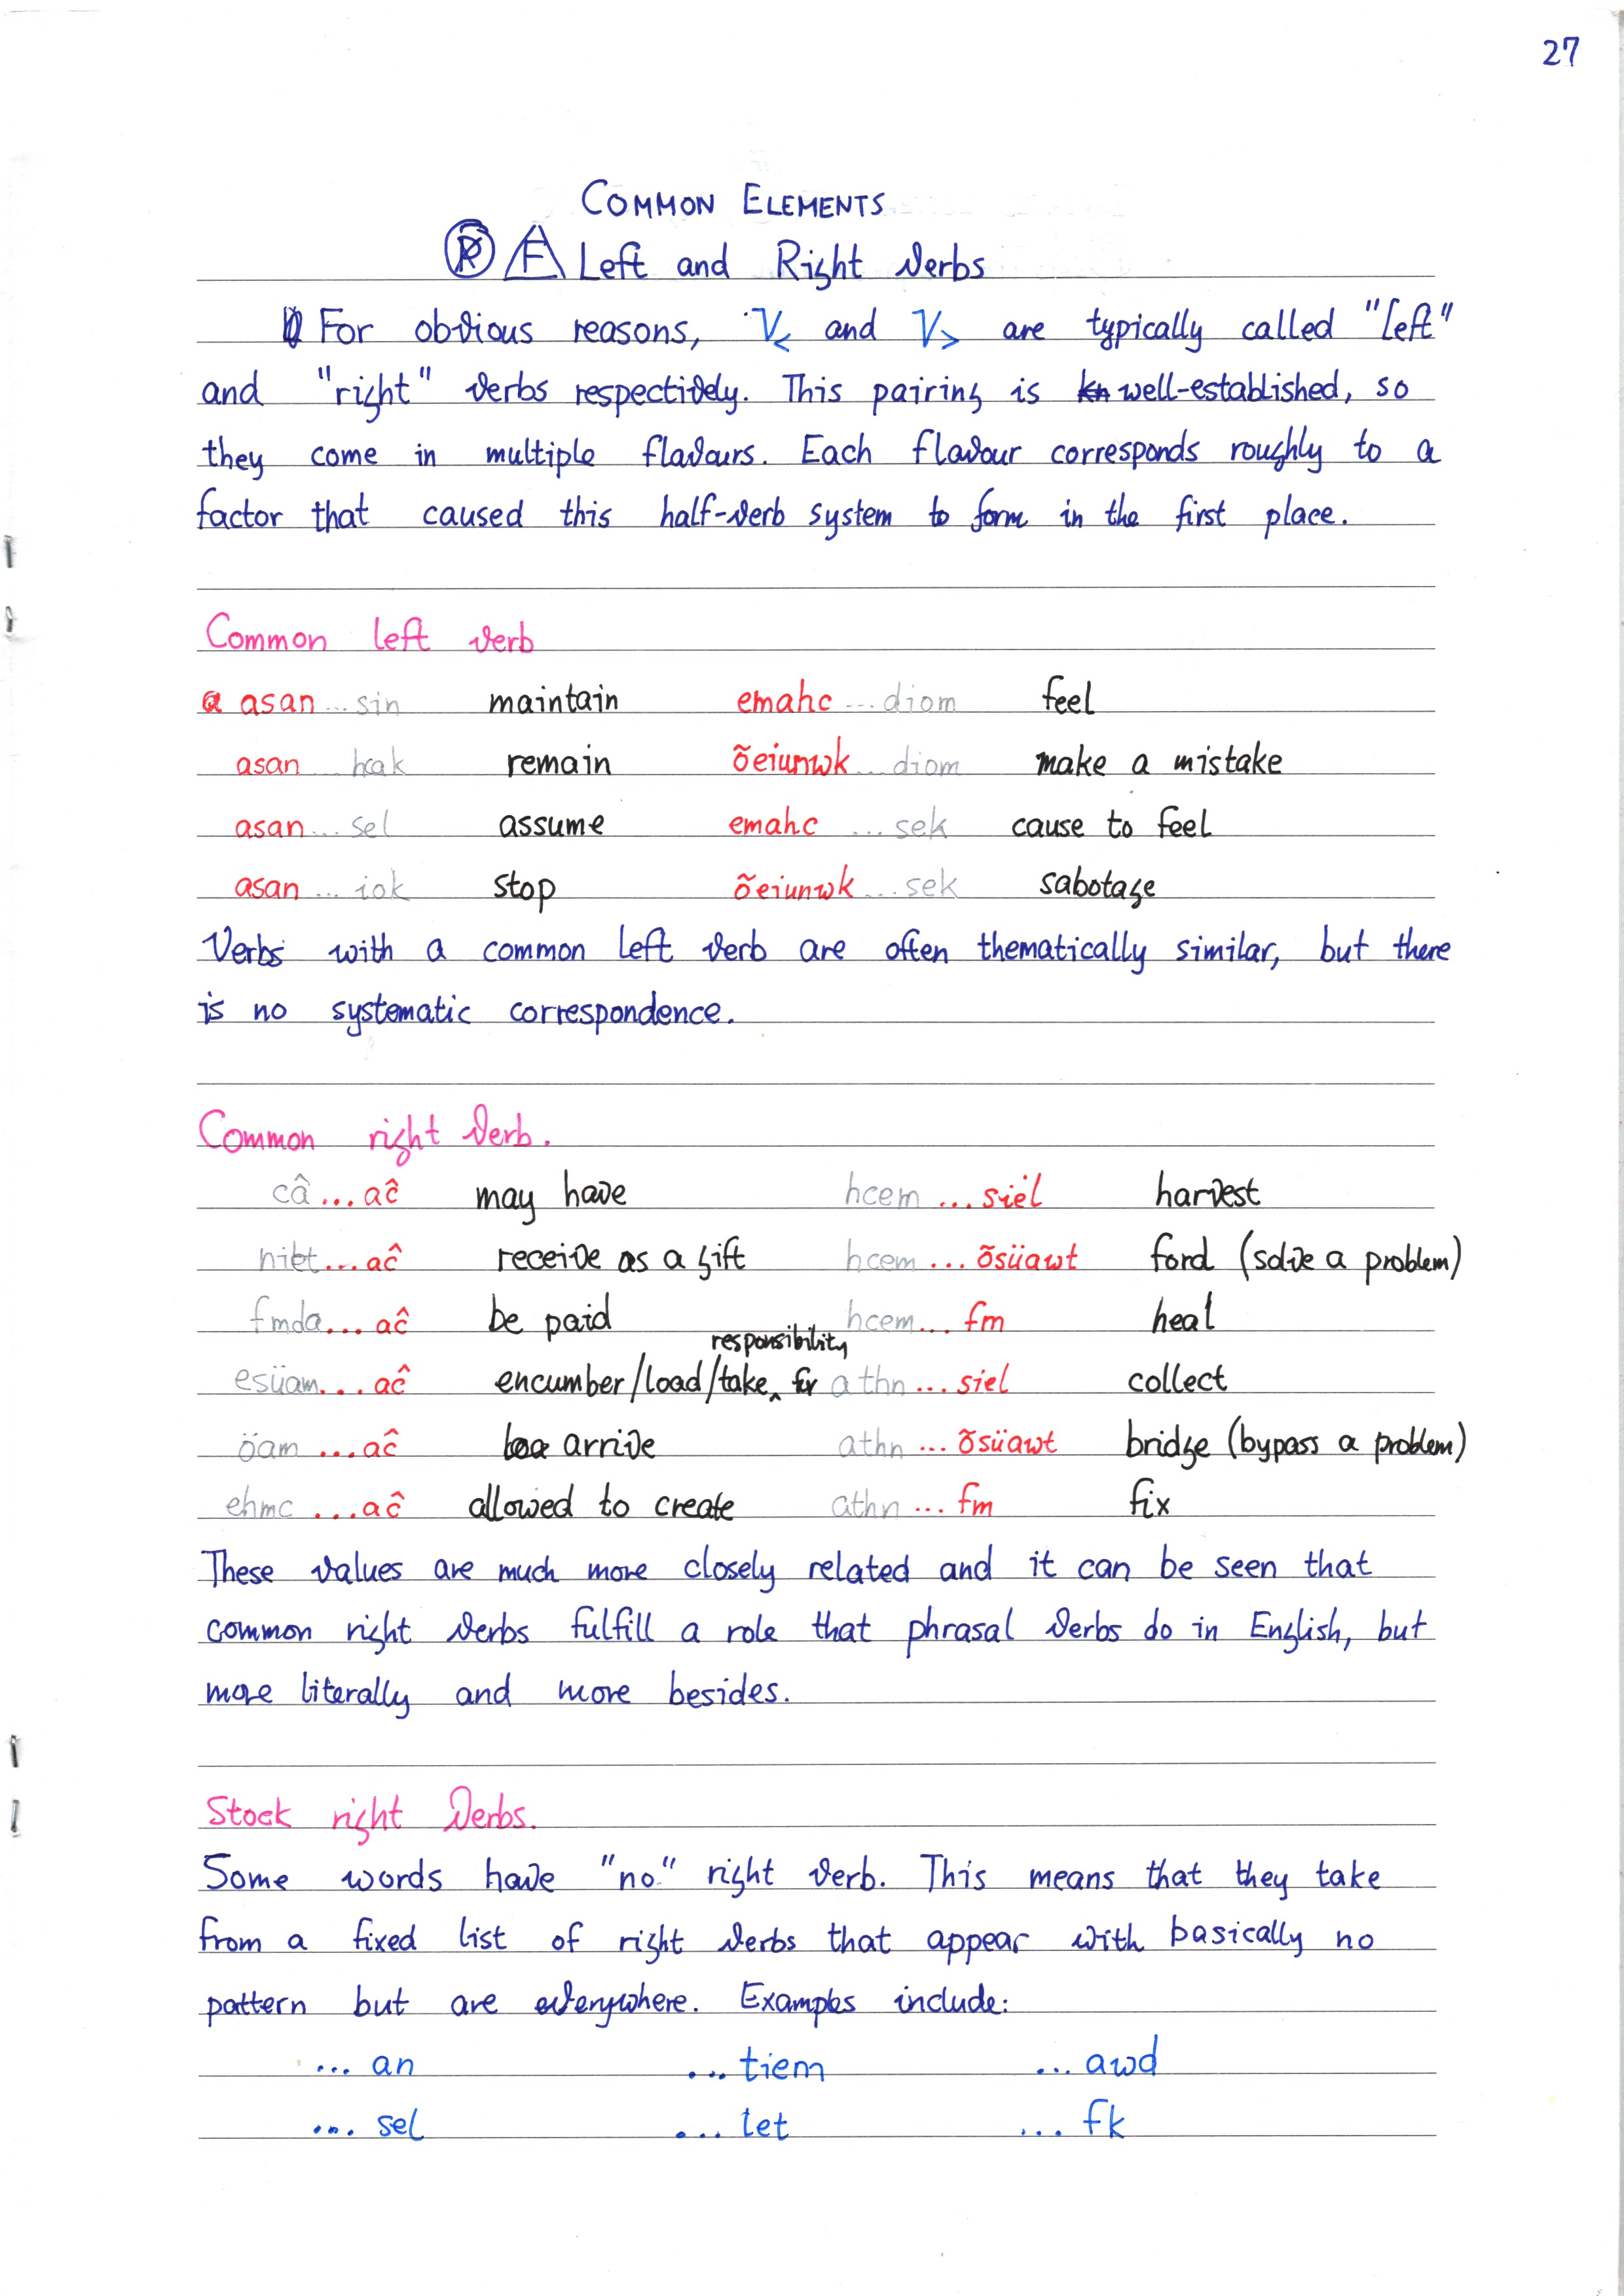 27
COMMON ELEMENTS
R F Left and Right Verbs
For obvious reasons, V< and V> are typically called "left"
and "right" verbs respectively. This pairing is well-established, so
they come in multiple flavours. Each flavour corresponds roughly to a
factor that caused this half-verb system to form in the first place.
Common left verb
asan ... sin maintain emahc ... diom feel
asan ... hcak remain õeiunwk ... diom make a mistake
asan ... sel assume emahc ... sek cause to feel
asan ... iok stop õeiunwk ... sek sabotage
Verbs with a common left verb are often thematically similar, but there
is no systematic correspondence.
Common right verb.
câ ... aĉ may have hcem ... siel harvest
niet ... aĉ receive as a gift hcem ... õsüawt ford (solve a problem)
fmda ... aĉ be paid hcem ... fm heal
esüam ... aĉ encumber/load/take responsibility for athn ... siel collect
öam ... aĉ arrive athn ... õsüawt bridge (bypass a problem)
ehmc ... aĉ allowed to create athn ... fm fix
These values are much more closely related and it can be seen that
common right verbs fulfill a role that phrasal verbs do in English, but
more literally and more besides.
Stock right verbs.
Some words have "no" right verb. This means that they take
from a fixed list of right verbs that appear with basically no
pattern but are everywhere. Examples include:
... an ... tiem ... awd
... sel ... let ... fk